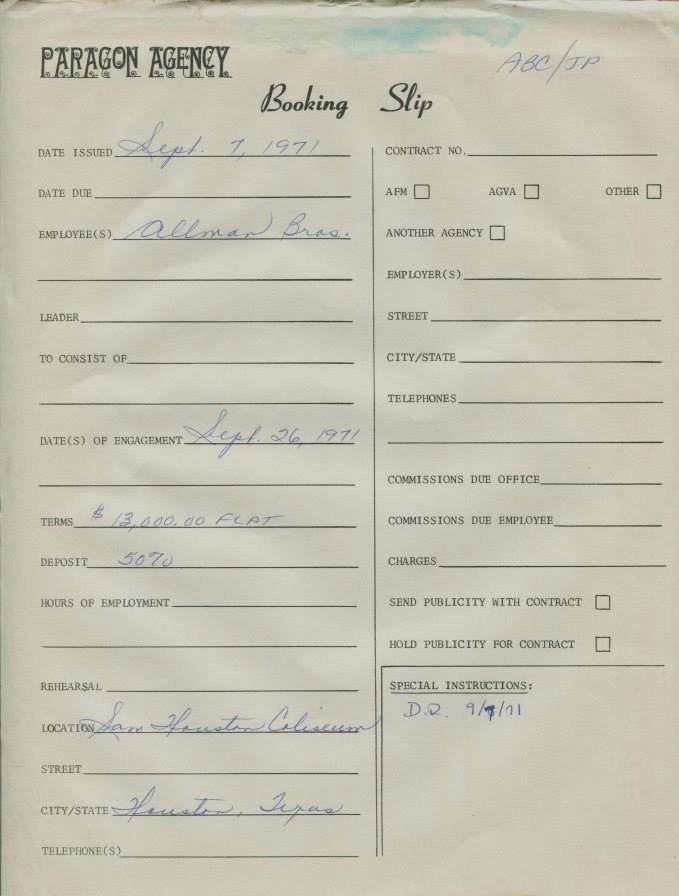 PARAGON AGENCY
ABC/JP
Booking Slip
DATE ISSUED Sept. 7, 1971
DATE DUE
EMPLOYEE(S) Allman Bros.
LEADER
TO CONSIST OF
DATE(S) OF ENGAGEMENT Sept. 26, 1971
TERMS $13,000.00 FLAT
DEPOSIT 50%
HOURS OF EMPLOYMENT
REHEARSAL
LOCATION Sam Houston Coliseum
STREET
CITY/STATE Houston, Texas
TELEPHONE(S)
CONTRACT NO.
AFM AGVA OTHER
ANOTHER AGENCY
EMPLOYER(S)
STREET
CITY/STATE
TELEPHONES
COMMISSIONS DUE OFFICE
COMMISSIONS DUE EMPLOYEE
CHARGES
SEND PUBLICITY WITH CONTRACT
HOLD PUBLICITY FOR CONTRACT
SPECIAL INSTRUCTIONS:
9/7/71